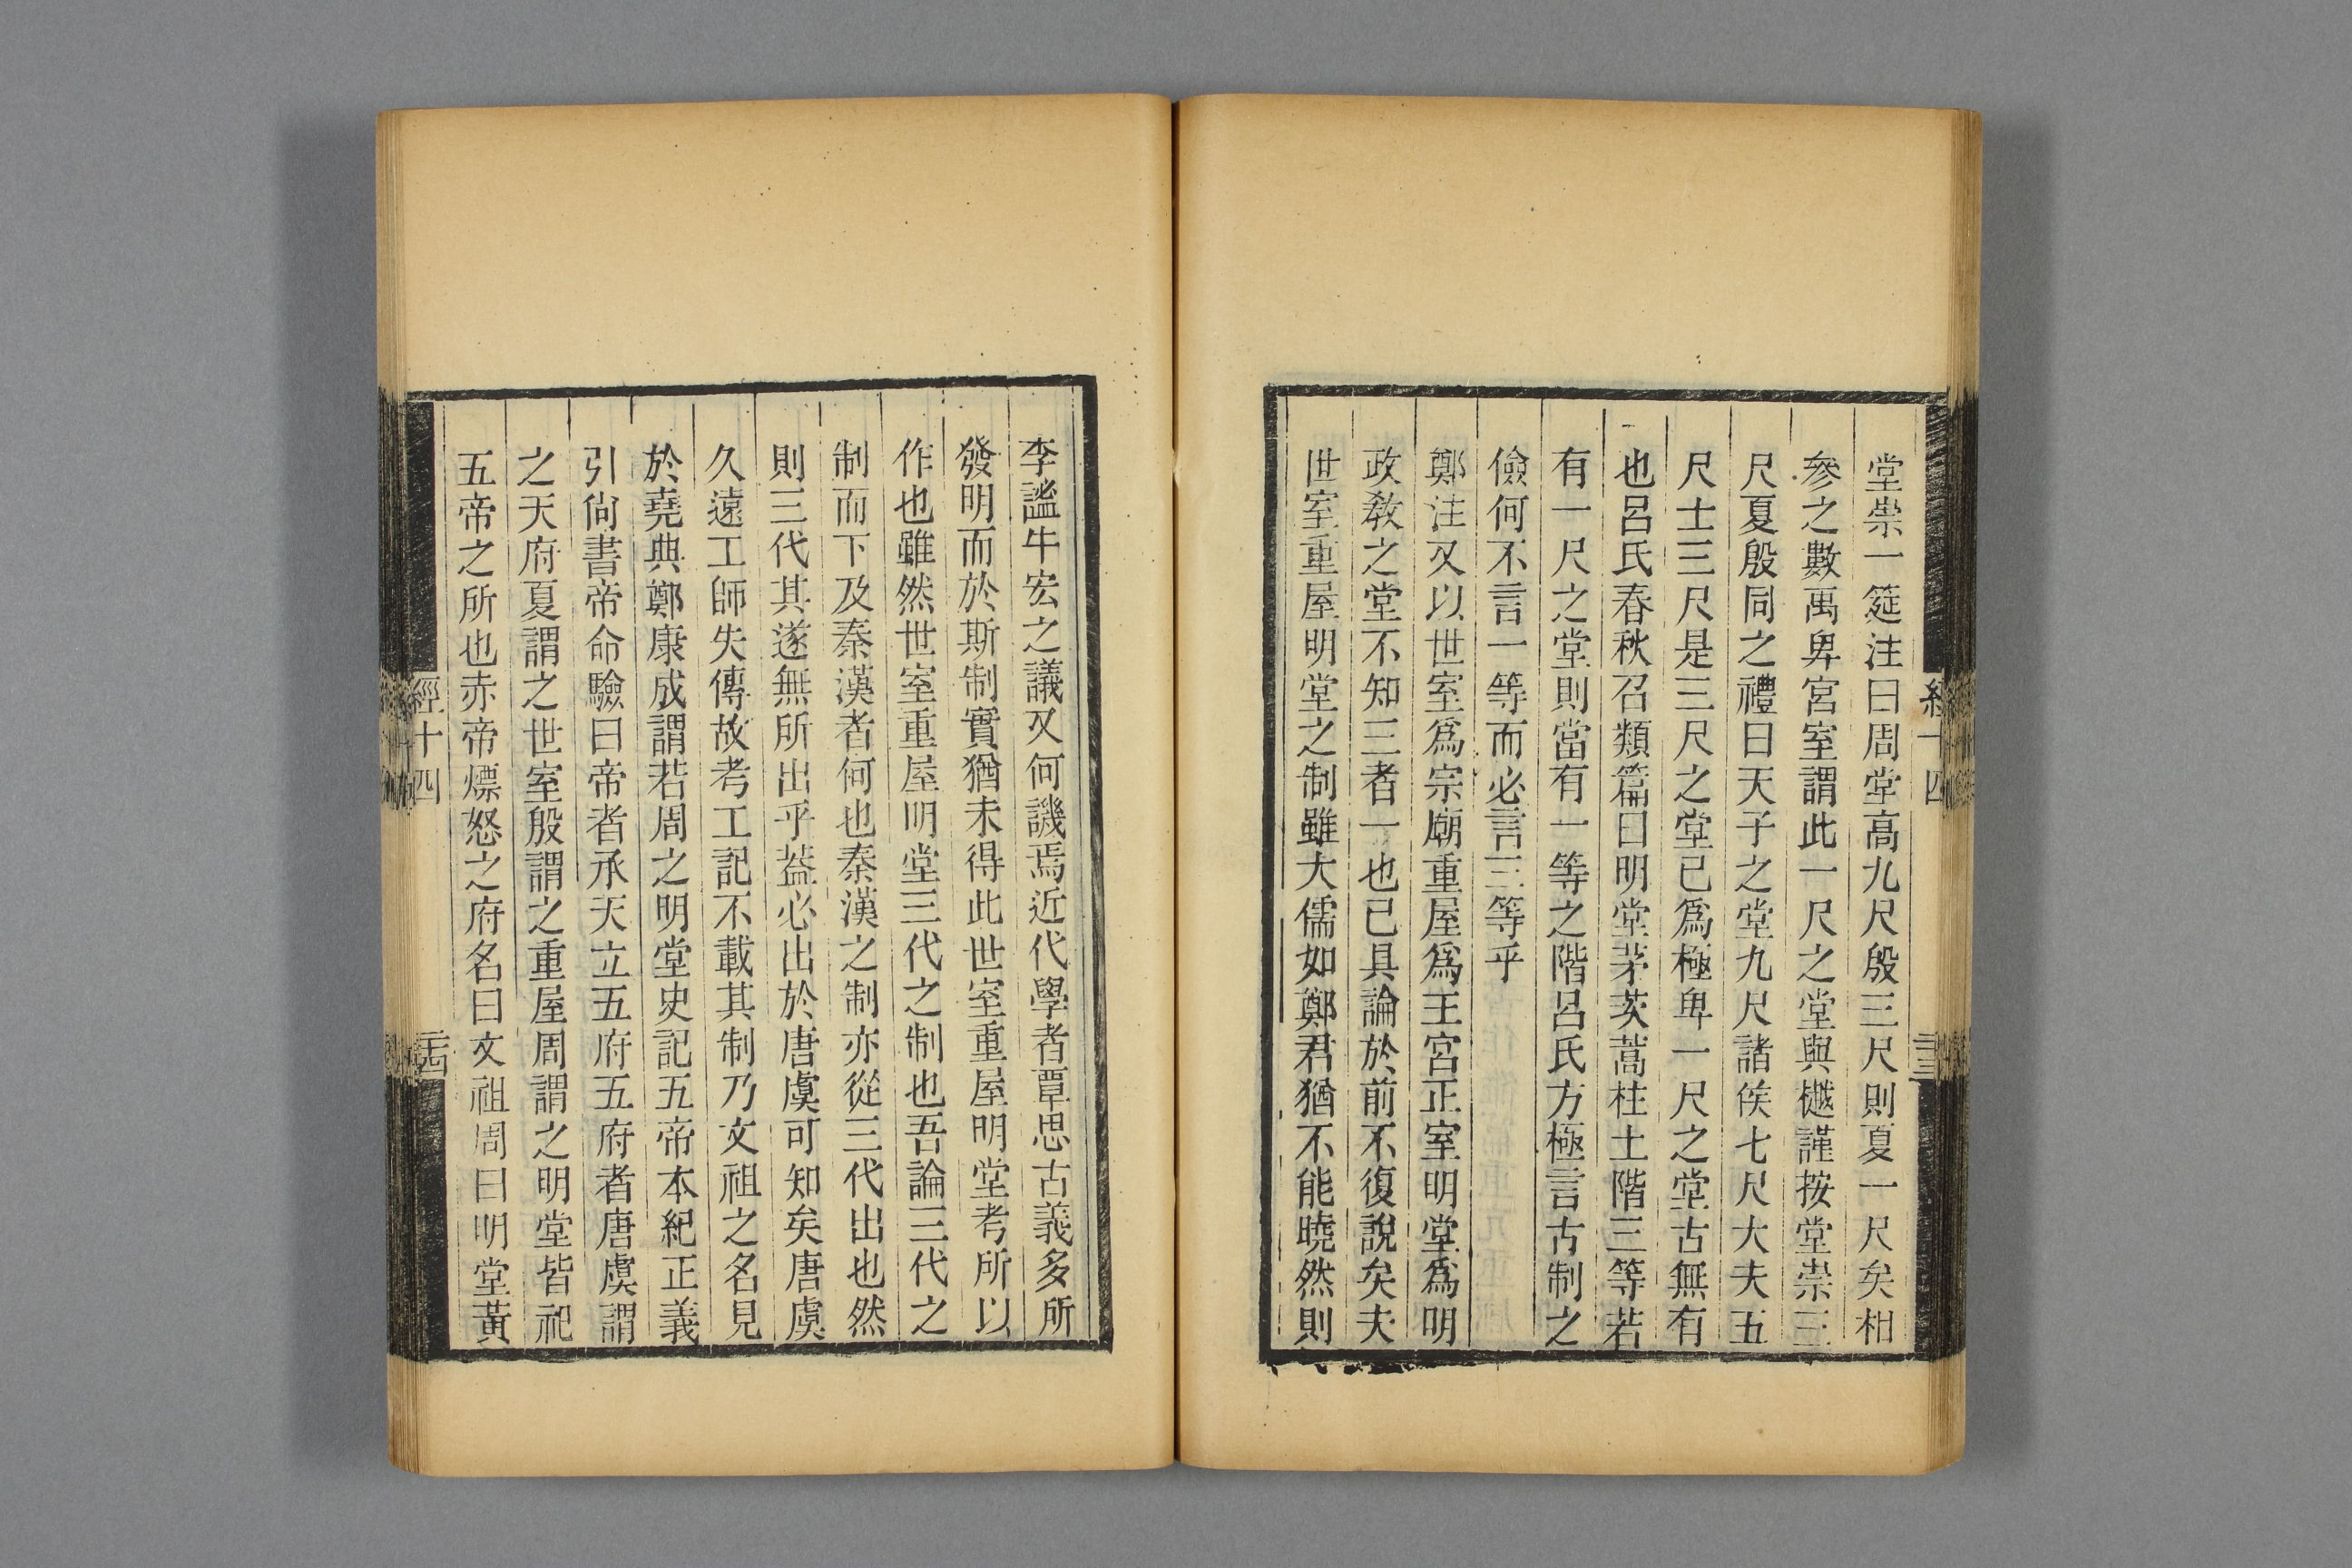 經十四
二十三
堂崇一筵注曰周堂高九尺殷三尺則夏一尺矣相
參之數禹卑宮室謂此一尺之堂與樾謹按堂崇三
尺夏殷同之禮曰天子之堂九尺諸矦七尺大夫五
尺士三尺是三尺之堂已爲極卑一尺之堂古無有
也呂氏春秋召類篇曰明堂茅茨蒿柱土階三等若
有一尺之堂則當有一等之階呂氏方極言古制之
儉何不言一等而必言三等乎
鄭注又以世室爲宗廟重屋爲王宮正室明堂爲明
政敎之堂不知三者一也已具論於前不復說矣夫
世室重屋明堂之制雖大儒如鄭君猶不能曉然則
李謐牛宏之議又何譏焉近代學者覃思古義多所
發明而於斯制實猶未得此世室重屋明堂考所以
作也雖然世室重屋明堂三代之制也吾論三代之
制而下及秦漢者何也秦漢之制亦從三代出也然
則三代其遂無所出乎葢必出於唐虞可知矣唐虞
久遠工師失傳故考工記不載其制乃文祖之名見
於堯典鄭康成謂若周之明堂史記五帝本紀正義
引尙書帝命驗曰帝者承天立五府五府者唐虞謂
之天府夏謂之世室殷謂之重屋周謂之明堂皆祀
五帝之所也赤帝熛怒之府名曰文祖周曰明堂黃
經十四
二十四